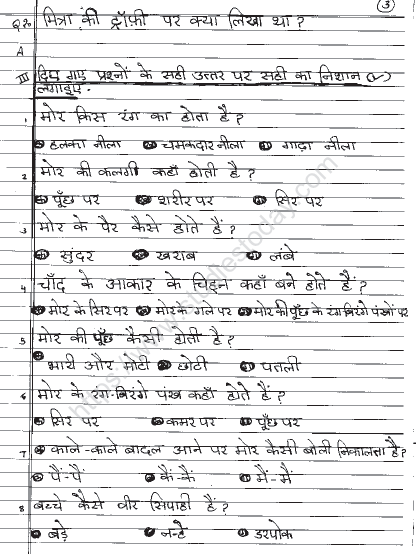 (3)
Q2. मित्रा की ट्रॉफी पर क्या लिखा था ?
A
III दिए गए प्रश्नों के सही उत्तर पर सही का निशान (✓)
लगाइए -
1 मोर किस रंग का होता है ?
हलका नीला चमकदार नीला गाढ़ा नीला
2 मोर की कलगी कहाँ होती है ?
पूँछ पर शरीर पर सिर पर
3 मोर के पैर कैसे होते हैं ?
सुंदर खराब लंबे
4 चाँद के आकार के चिह्न कहाँ बने होते हैं ?
मोर के सिर पर मोर के गले पर मोर की पूँछ के रंग-बिरंगे पंखों पर
5 मोर की पूँछ कैसी होती है ?
भारी और मोटी छोटी पतली
6 मोर के रंग-बिरंगे पंख कहाँ होते हैं ?
सिर पर कमर पर पूँछ पर
7 काले-काले बादल आने पर मोर कैसी बोली निकालता है ?
पैं-पैं कैं-कैं मैं-मैं
8 बच्चे कैसे वीर सिपाही हैं ?
बड़े नन्हे डरपोक
https://www.studiestoday.com